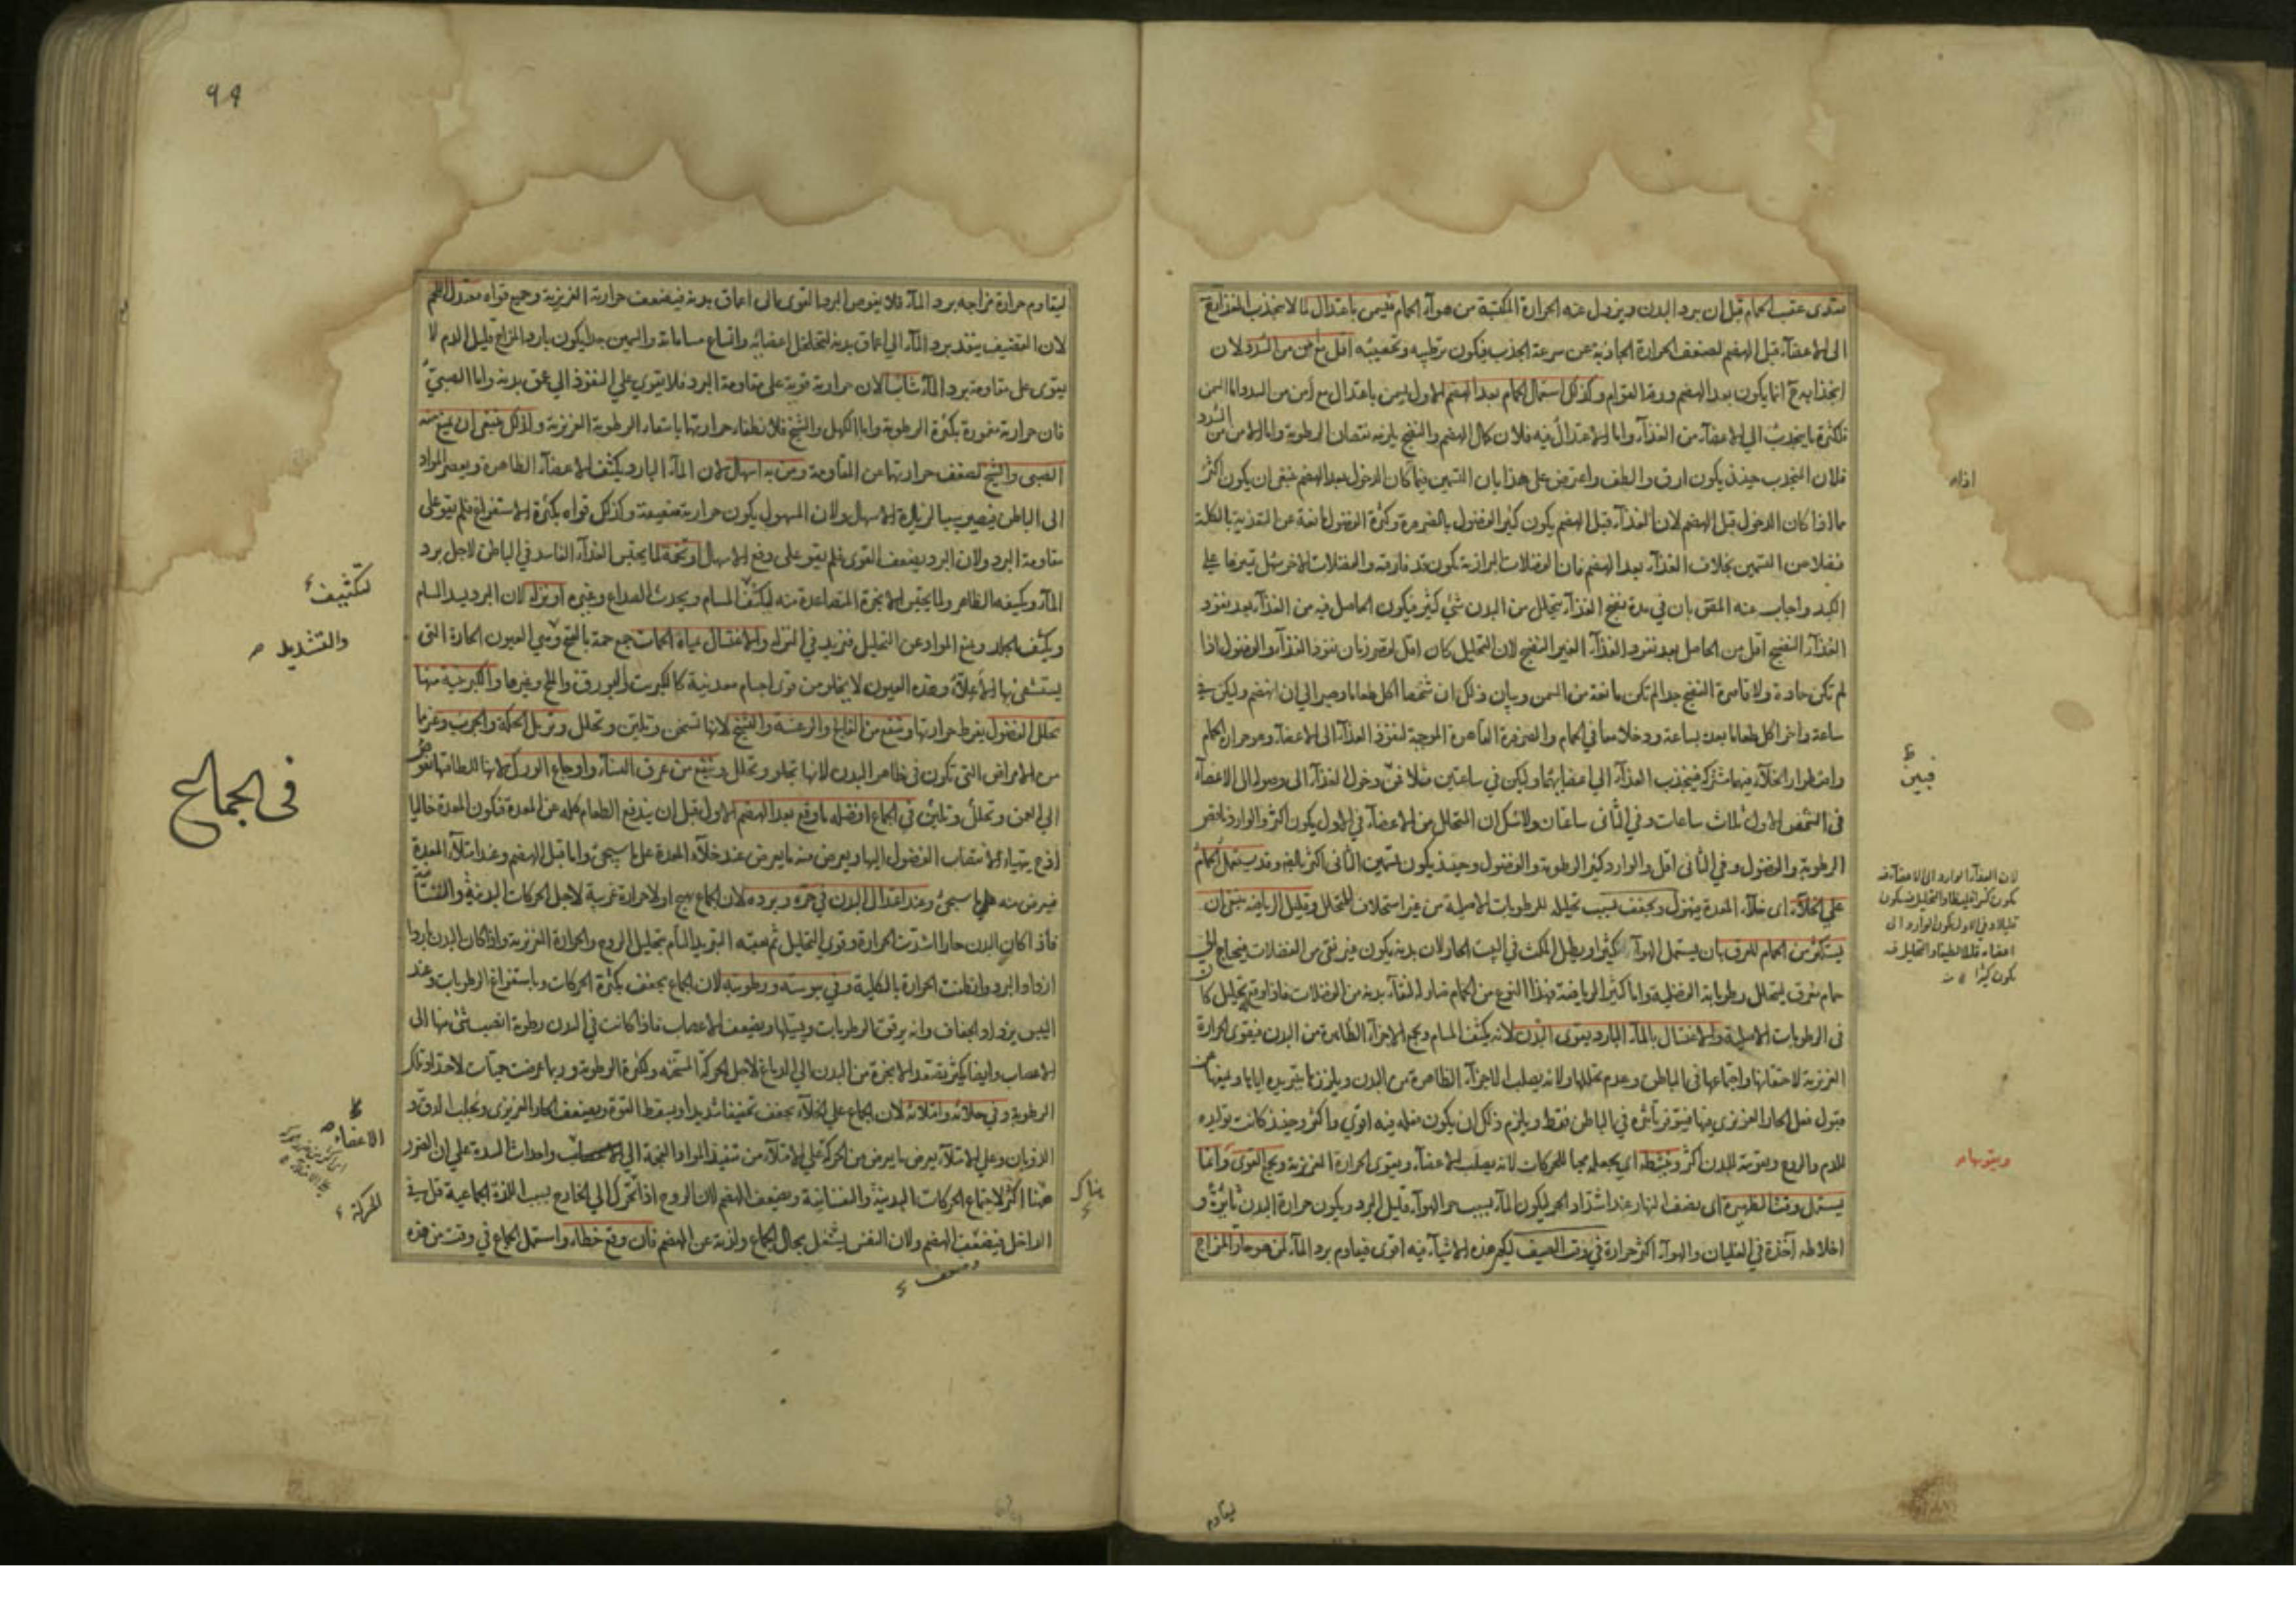 يغتدى عقيب الحمام قبل ان يبرد البدن ويزول عنه الحرارة المكتسبة من هواء الحمام فيسمن باعتدال لما لا ينجذب الغذاء مع
الى الاعضاء قبل الهضم لضعف الحرارة الجاذبة عن سرعة الجذب فيكون ترطيبه وتخصيبه اقل مع امن من السدد لان
انجذابه ح انما يكون بعد الهضم ورقة القوام وكذلك استعمال الحمام بعد الهضم الاول يسمن باعتدال مع أمن من السدد اما السمن
فلكثرة ما ينجذب الى الاعضاء من الغذاء واما الاعتدال فيه فلان كمال الهضم والنضج يلزمه نقصان الرطوبة واما الامن من السدد
فلان المنجذب حينئذ يكون ارق والطف واعترض على هذا بان التسمين فيما كان الدخول بعد الهضم ينبغى ان يكون اكثر
مما اذا كان الدخول قبل الهضم لان الغذاء قبل الهضم يكون كثير الفضول بالضرورة وكثرة الفضول مانعة عن التغذية بالكلية
فضلا من التسمين بخلاف الغذاء بعد الهضم فان الفضلات البرازية تكون قد فارقته والفضلات الاخر سهل تميزها على
الكبد واجاب عنه المحقق بان فى مدة نضج الغذاء يتحلل من البدن شئ كثير فيكون الحاصل فيه من الغذاء بعد نفوذ
الغذاء النضيج اقل من الحاصل بعد نفوذ الغذاء الغير النضيج لان التحليل كان اقل لقصر زمان نفوذ الغذاء والفضول اذا
لم تكن حادة ولا قاسرة النضج جدا لم تكن مانعة من السمن وبيان ذلك ان شخصا اكل طعاما وصبر الى ان انهضم وليكن فى
ساعة واخر اكل طعاما بعده بساعة ودخلا معا فى الحمام والضرورة القاسرة الموجبة لنفوذ الغذاء الى الاعضاء وهو حرارة الحمام
واضطرار الخلاء فيهما مشتركة فينجذب الغذاء الى اعضائهما وليكن فى ساعتين مثلا فمن دخول الغذاء الى وصوله الى الاعضاء
فى الشخص الاول ثلاث ساعات وفى الثانى ساعتان ولا شك ان التحلل من الاعضاء فى الاول يكون اكثر والوارد ناقص
الرطوبة والفضول وفى الثانى اقل والوارد كثير الرطوبة والفضول وحينئذ يكون تسمين الثانى اكثر بالضرورة وقد يستعمل الحمام
على الخلاء اى خلاء المعدة فيهزل ويجفف بسبب تحليله للرطوبات الاصلية من غير استخلاف للمتحلل وقليل الرياضة ينبغى ان
يستكثر من الحمام المعرق بان يستعمل الهواء كثيرا ويطيل المكث فى البيت الحار لان بدنه يكون غير نقى من الفضلات فيحتاج الى
حمام معرق يتحلل رطوباته الفضلية واما كثير الرياضة فهذا النوع من الحمام ضار له لنقاء بدنه من الفضلات
فى الرطوبات الاصلية والاغتسال بالماء البارد يقوى البدن لانه يكثف المسام ويجمع الاجزاء الظاهرة من البدن فيقوى الحرارة
الغريزية لاحتقانها واجتماعها فى الباطن وعدم تحللها ولانه يصلب الاجزاء الظاهرة من البدن ويلززها بتبريده اياها ويمنعها عن
قبول فعل الحار الغريزى فيها فيتوفر تأثيره فى الباطن فقط ويلزم ذلك ان يكون فعله فيه اقوى واكثر وحينئذ كانت توليده
للدم والروح وتقويته للبدن اكثر وينشطه اى يجعله محبا للحركات لانه يصلب الاعضاء ويقوى الحرارة الغريزية ويجمع القوى وانما
يستعمل وقت الظهيرة اى نصف النهار عند اشتداد الحر ليكون الماء بسبب حر الهواء قليل البرد ويكون حرارة البدن ثائرة و
اخلاطه آخذة فى الغليان والهواء اكثر حرارة فى وقت الصيف ليكون هذه الاشياء فيه اقوى فيقاوم برد الماء لمن هو حار المزاج
اذا
فبين
لان الغذاء الوارد الى الاعضاء فيه
يكون كثيرا غليظا والتحليل فيه يكون
قليلا وفى الاول يكون الوارد الى
اعضائه قليلا لطيفا والتحليل فيه
يكون كثيرا
ويقويها
ليقاوم
٩٩
ليقاوم حرارة مزاجه برد الماء فلا يغوص البرد القوى الى اعماق بدنه فيضعف حرارته الغريزية وجميع قواه معتدل اللحم
لان القضيف ينفذ برد الماء الى اعماق بدنه لتخلخل اعضائه واتساع مساماته والسمين جدا يكون بارد المزاج قليل الدم لا
يقوى على مقاومة برد الماء شابا لان حرارته قوية على مقاومة البرد فلا يقوى على النفوذ الى عمق بدنه واما الصبىّ
فان حرارته مغمورة بكثرة الرطوبة واما الكهل والشيخ فلانطفاء حرارتهما بانتقاد الرطوبة الغريزية ولذلك ينبغى ان يمنع منه
الصبى والشيخ لضعف حرارتهما من المقاومة ومن به اسهال لان الماء البارد يكثف الاعضاء الظاهرة ويعصر المواد
الى الباطن فيصير سببا لزيادة الاسهال ولان المسهول يكون حرارته ضعيفة وكذلك قواه بكثرة الاستفراغ فلم يقو على
مقاومة البرد ولان البرد يضعف القوى فلم يقو على دفع الاسهال او تخمة لما يحتبس الغذاء الفاسد فى الباطن لاجل برد
الماء وتكثيفه الظاهر ولما يحتبس الابخرة المتصاعدة منه لتكثف المسام ويحدث الصداع وغيره او نزلة لان البرد يسد المسام
ويكثف الجلد ويمنع المواد عن التحليل فتزيد فى النزلة والاغتسال بمياه الحمات جمع حمة بالفتح وهى العيون الحارة التى
يستشفى بها الاعلاء وهذه العيون لا يخلو من قوى اجسام معدنية كالكبريت والبورق والملح وغيرها والكبريتية منها
تحلل الفضول بفرط حرارتها وتنفع من الفالج والرعشة والتشنج لانها تسخن وتلين وتحلل وتزيل الحكة والجرب وغيرها
من الامراض التى تكون فى ظاهر البدن لانها تجلو وتحلل وتنفع من عرق النساء واوجاع الورك لانها للطافتها تغوص
الى العمق وتحلل وتلين فى الجماع افضله ما وقع بعد الهضم الاول قبل ان يندفع الطعام كله عن المعدة فيكون المعدة خاليا
اذ ح يتهياء لانصباب الفضول اليها ويعرض منه ما يعرض عند خلاء المعدة على ما سيجئ واما قبل الهضم وعند امتلاء المعدة
فيعرض منه على ما سيجئ وعند اعتدال البدن فى حره وبرده لان الجماع يهيج اولا حرارة غريبة لاجل الحركات البدنية والنفسانية
فاذا كان البدن حارا اشتدت الحرارة وقوى التحليل ثم يعقبه التبريد التام بتحليل الروح والحرارة الغريزية واذا كان البدن باردا
ازداد البرد وانطفت الحرارة بالكلية وفى يبوسته ورطوبته لان الجماع يجفف بكثرة الحركات وباستفراغ الرطوبات وعند
اليبس يزداد الجفاف وانه يرقق الرطوبات ويسيلها ويضعف الاعصاب فاذا كانت فى البدن رطوبة انصب شئ منها الى
الاعصاب وايضا يكثر تصعد الابخرة من البدن الى الدماغ لاجل الحركة المسخنة ولكثرة الرطوبة وربما عرضت حميات لاحتداد تلك
الرطوبة وفى خلائه وامتلائه لان الجماع على الخلاء يجفف تجفيفا شديدا ويسقط القوة ويضعف الحار الغريزى ويجلب الدق و
الذوبان وعلى الامتلاء يعرض ما يعرض من الحركة على الامتلاء من تنفيذ المواد الفجة الى واحداث السدة على ان الضرر
هنا اكثر لاجتماع الحركات البدنية والنفسانية ويضعف الهضم لان الروح اذا تحرك الى الخارج بسبب اللذة الجماعية قل فى
الداخل فيضعف الهضم ولان النفس يشتغل بحال الجماع ولذته عن الهضم فان وقع خطاء واستعمل الجماع فى وقت من هذه
لتكثيف
والتشديد
فى الجماع
الاعضاء
للحركة
هناك
وضعف